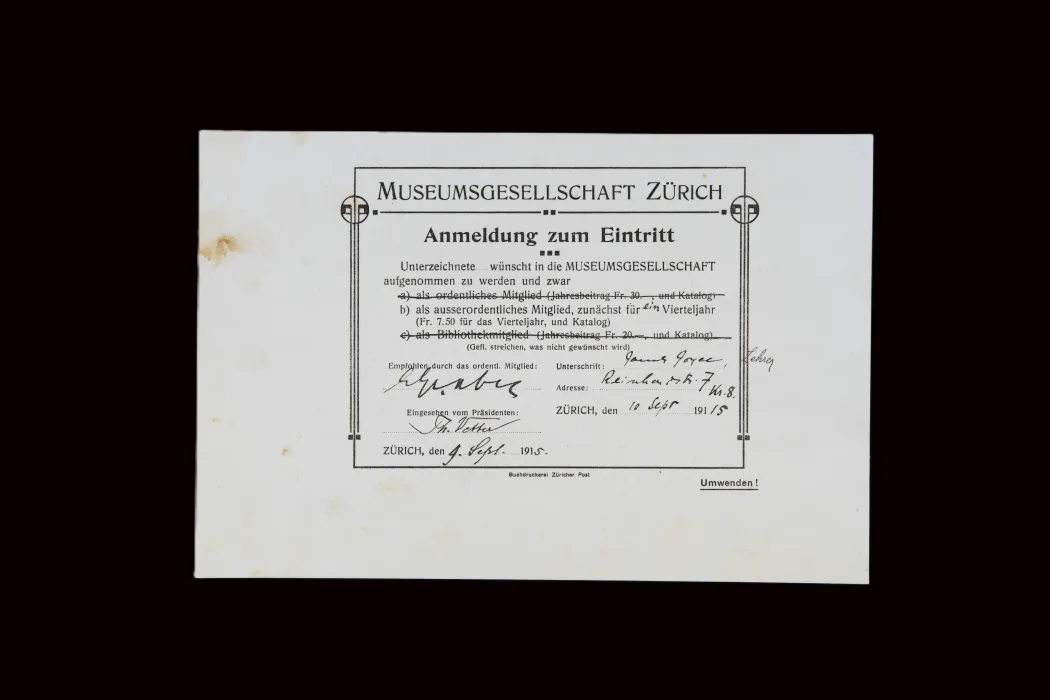 MUSEUMSGESELLSCHAFT ZÜRICH
Anmeldung zum Eintritt
Unterzeichnete wünscht in die MUSEUMSGESELLSCHAFT
aufgenommen zu werden und zwar
a) als ordentliches Mitglied (Jahresbeitrag Fr. 30.—, und Katalog)
b) als ausserordentliches Mitglied, zunächst für ein Vierteljahr
(Fr. 7.50 für das Vierteljahr, und Katalog)
c) als Bibliothekmitglied (Jahresbeitrag Fr. 20.—, und Katalog)
(Gefl. streichen, was nicht gewünscht wird)
Empfohlen durch das ordentl. Mitglied:
Unterschrift: James Joyce, Lehrer
Adresse: Reinhardstr. 7
Kr. 8.
ZÜRICH, den 10 Sept 191 15
Eingesehen vom Präsidenten:
Th. Vetter
ZÜRICH, den 9. Sept. 1915.
Buchdruckerei Züricher Post
Umwenden!